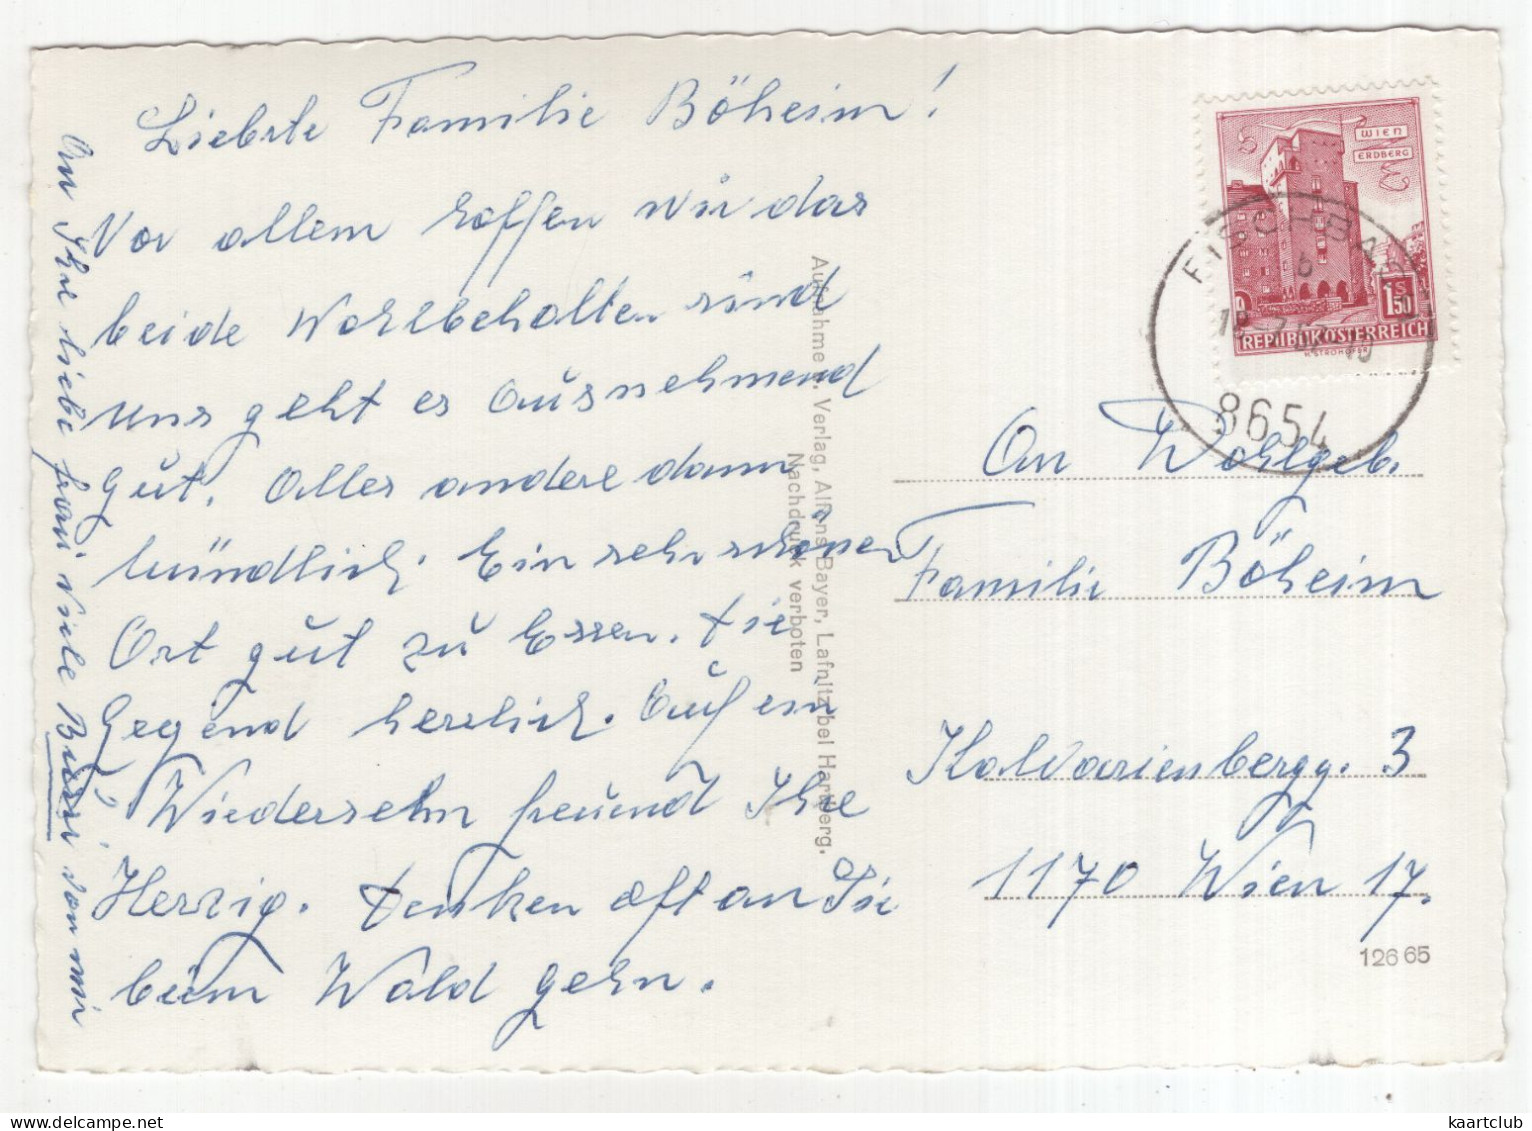 Liebste Familie Böheim!
Vor allem hoffen wir das
beide Wohlbehalten sind
uns geht es Ausnehmend
Gut. Alles andere dann
mündlich. Ein sehr schöner
Ort gut zu Essen. Die
Gegend herrlich. Auf ein
Wiedersehn freuend Ihre
Herzig. Denken oft an Sie
beim Wald gehn.
An Ihre liebe Frau viele Bussi von mir
Aufnahme u. Verlag, Alfons Bayer, Lafnitz bei Hartberg.
Nachdruck verboten
WIEN
ERDBERG
S
1.50
REPUBLIK ÖSTERREICH
FISCHBACH
b
8654
An Wohlgeb.
Familie Böheim
Kalvarienbergg. 3
1170 Wien 17.
126 65
kaartclub